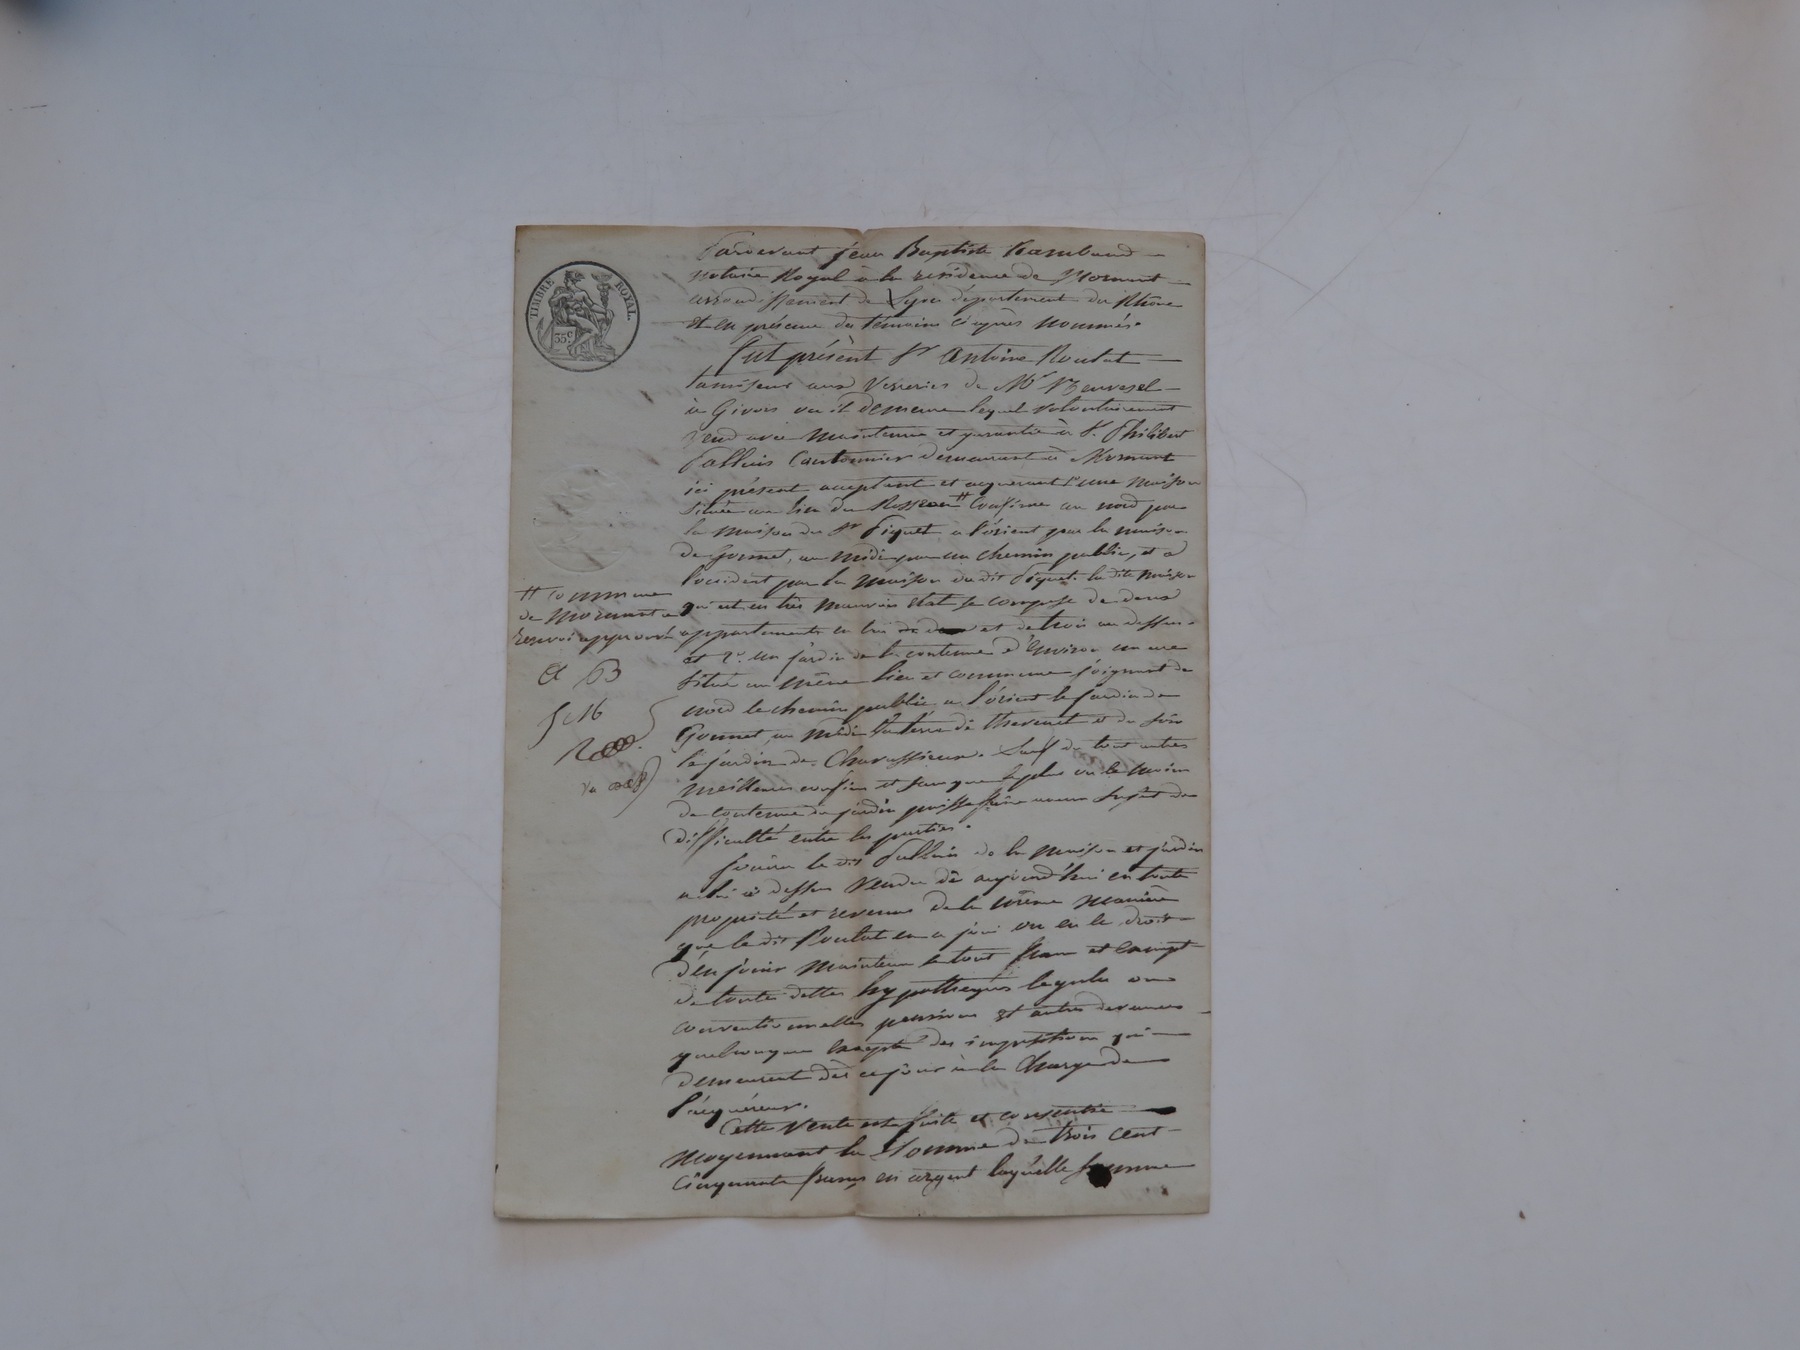 TIMBRE ROYAL.
35 c
Pardevant Jean Baptiste Rambaud
notaire Royal à la residence de Mornant
arrondissement de Lyon département du Rhône
et en présence des témoins ci après nommés.
Fut présent Sr Antoine Roulat
tamiseur aux Verreries de Mr
à Givors ou il demeure lequel volontairement
vend avec maintenue et garantie à S. Philibert
Cantonnier demeurant à Mornant
ici présent acceptant et acquerant 1° une maison
située au lieu du # Confine au nord par
la maison du Sr Piquet a l'orient par la maison
de Gounet, au midi par un chemin public, et a
l'occident par la maison du dit Piquet. la dite maison
qui est en très mauvais état se compose de deux
appartements en bas et de trois au dessus
et 2° un jardin de la contenue d'environ un are
situé au même lieu et commune joignant de
nord le chemin public a l'orient le jardin de
Gounet, au midi la terre de Thevenet et du soir
le jardin de Charassieux. Sauf de tout autres
meilleurs confins et sans que le plus ou le moins
de contenue du jardin puisse faire aucun sujet de
difficulté entre les parties.
Jouira le dit de la maison et jardin
a lui ci dessus vendu dès aujourd'hui en toute
propriété et revenus de la même manière
que le dit Roulat en a joui ou eu le droit
d'en jouir maintenu le tout franc et exempt
de toutes dettes hypothèques légales ou
conventionnelles pensions et autres redevances
quelconques excepté des impositions qui
demeurent dès ce jour à la charge de
l'acquéreur.
Cette vente est faite et consentie
moyennant la Somme de trois cent
cinquante francs en argent laquelle somme
# commune
de Mornant
renvoi approuvé